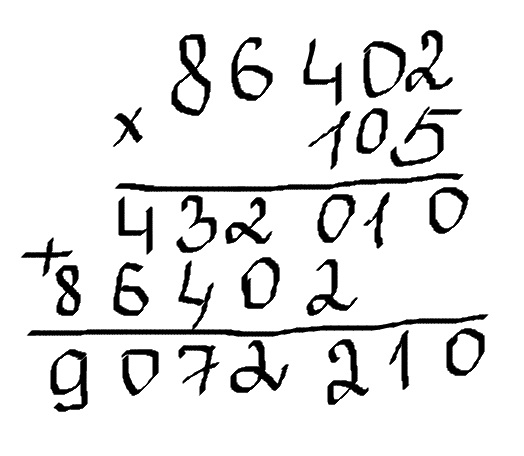 86402
×
105
432010
+
86402
9072210